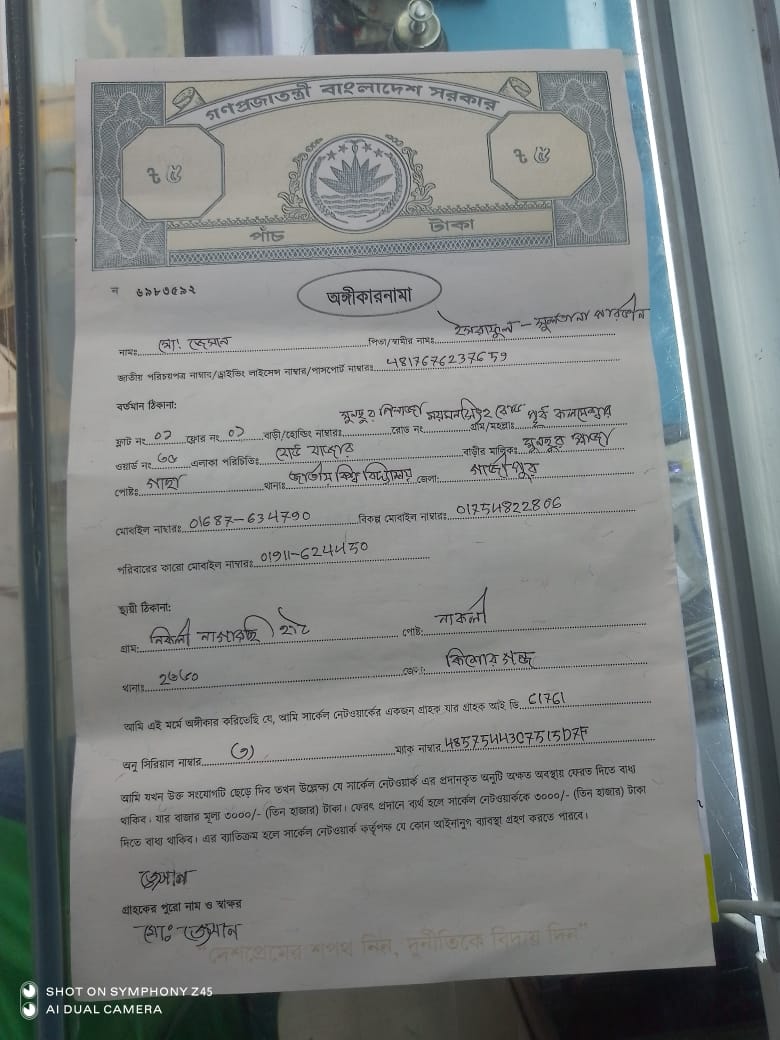 গণপ্রজাতন্ত্রী বাংলাদেশ সরকার
৳ ৫
৳ ৫
পাঁচ টাকা
ন ৬৯৮৩৫৯২
অঙ্গীকারনামা
নামঃ মো: পিতা/স্বামীর নামঃ - সুলতানা পারভীন
জাতীয় পরিচয়পত্র নাম্বার/ড্রাইভিং লাইসেন্স নাম্বার/পাসপোর্ট নাম্বারঃ 4817676237659
বর্তমান ঠিকানা:
ফ্লাট নং ০১ ফ্লোর নং ০১ বাড়ী/হোল্ডিং নাম্বারঃ রোড নং ময়মনসিংহ রোড গ্রাম/মহল্লাঃ পূর্ব কলমেশ্বর
ওয়ার্ড নং ৩৫ এলাকা পরিচিতিঃ বোর্ড বাজার বাড়ীর মালিকঃ
পোষ্টঃ গাছা থানাঃ জাতীয় বিশ্ব বিদ্যালয় জেলা: গাজীপুর
মোবাইল নাম্বারঃ 01687-634790 বিকল্প মোবাইল নাম্বারঃ 01754822806
পরিবারের কারো মোবাইল নাম্বারঃ 01911-624450
স্থায়ী ঠিকানা:
গ্রাম: নিকলী হাটি পোষ্ট:
থানাঃ জেলা: কিশোরগঞ্জ
আমি এই মর্মে অঙ্গীকার করিতেছি যে, আমি সার্কেল নেটওয়ার্কের একজন গ্রাহক যার গ্রাহক আই ডি C1761
অনু সিরিয়াল নাম্বার ম্যাক নাম্বার 485754443C7515D7F
আমি যখন উক্ত সংযোগটি ছেড়ে দিব তখন উল্লেক্ষ্য যে সার্কেল নেটওয়ার্ক এর প্রদানকৃত অনুটি অক্ষত অবস্থায় ফেরত দিতে বাধ্য
থাকিব। যার বাজার মূল্য ৩০০০/- (তিন হাজার) টাকা। ফেরৎ প্রদানে ব্যর্থ হলে সার্কেল নেটওয়ার্ককে ৩০০০/- (তিন হাজার) টাকা
দিতে বাধ্য থাকিব। এর ব্যাতিক্রম হলে সার্কেল নেটওয়ার্ক কর্তৃপক্ষ যে কোন আইনানুগ ব্যাবস্থা গ্রহণ করতে পারবে।
গ্রাহকের পুরো নাম ও স্বাক্ষর
মো:
"দেশপ্রেমের শপথ নিন, দুর্নীতিকে বিদায় দিন"
SHOT ON SYMPHONY Z45
AI DUAL CAMERA